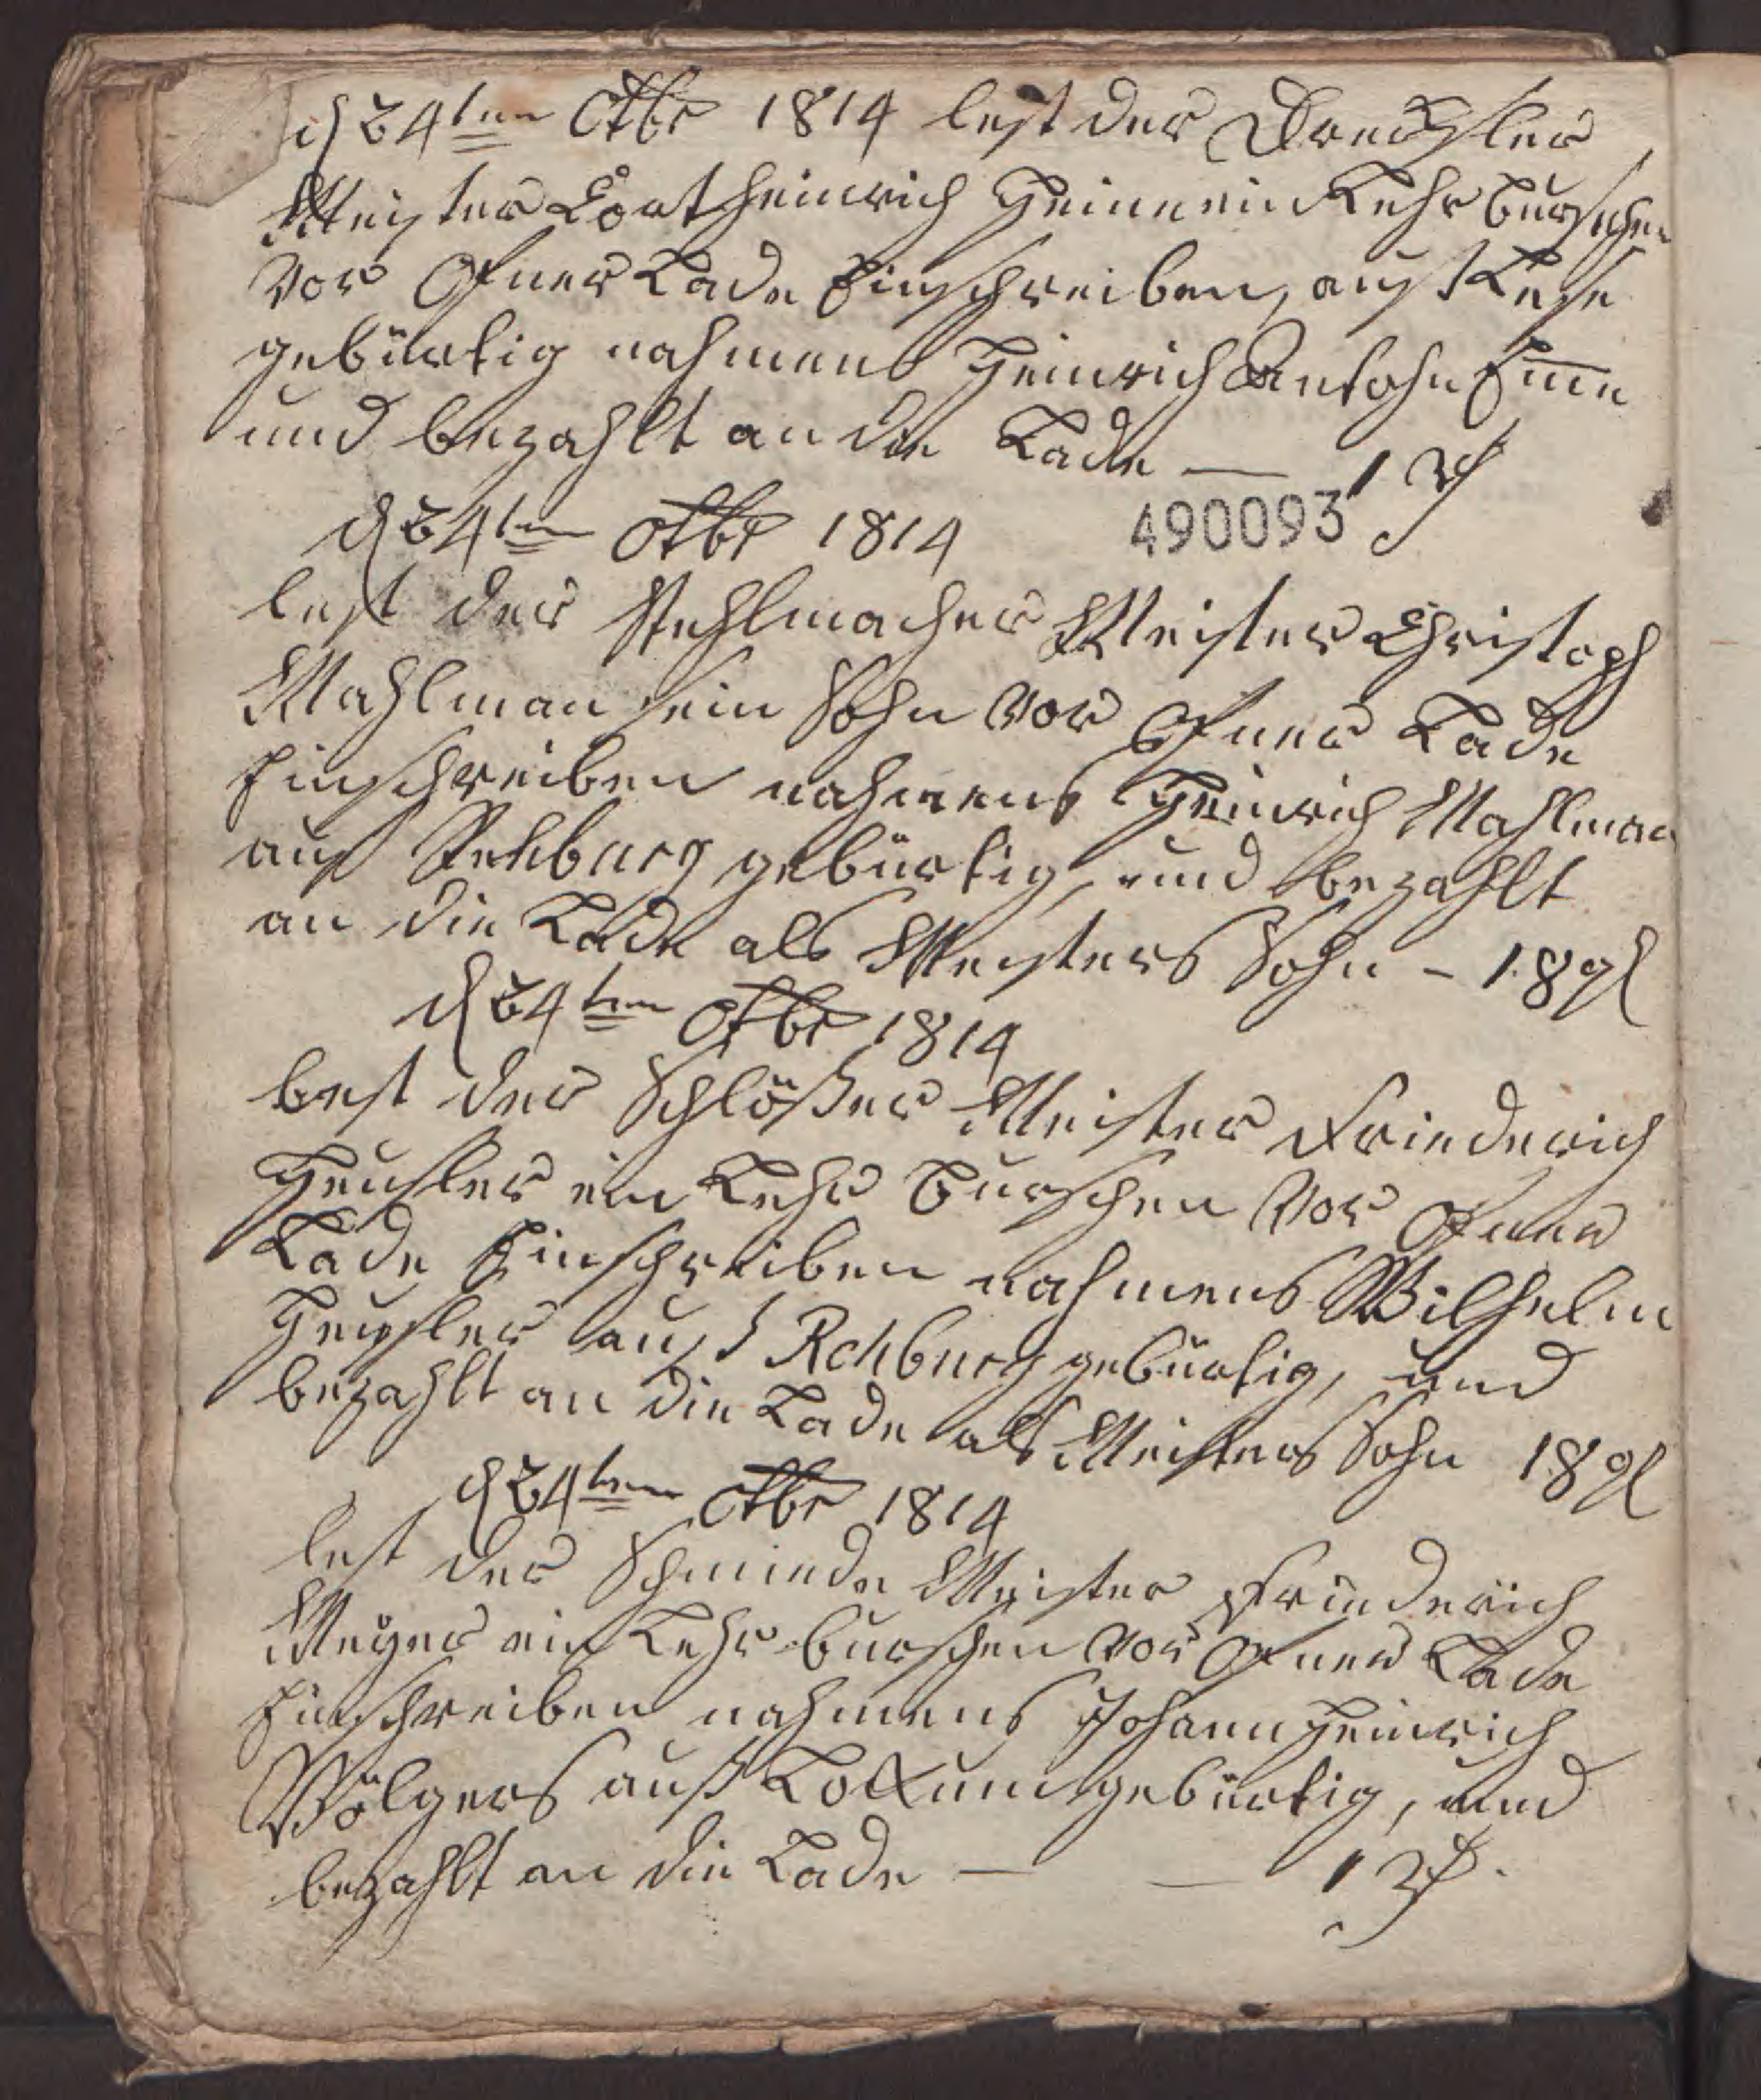 d 24ten Octbr 1814 lest der Drechsler
Meister Cort Heinrich Heine ein Lehr Burschen
vor Ofner Lade Einschreiben, auß Leese
gebürtig nahmens Heinrich Antohn
und bezahlt an die Lade — 1 rℓ
490093
d 24ten Octbr 1814
lest der Stehlmacher Meister Christoph
Mahlman sein Sohn vor Ofner Lade
Einschreiben nahmens Heinrich Mahlman
aus Rehburg gebürtig, und bezahlt
an die Lade als Meisters Sohn - 18 gl
d 24ten Octbr 1814
lest der Schlößer Meister Friederich
Heusler ein Lehr Burschen vor Ofner
Lade Einschreiben nahmens Wilhelm
Heusler auß Rehburg gebürtig, und
bezahlt an die Lade als Meisters Sohn 18 gl
d 24ten Octbr 1814
lest der Schmiede Meister Friederich
Meyer ein Lehr burschen vor Ofner Lade
Einschreiben nahmens Johann Heinrich
Völgers auß Lokkum gebürtig, und
bezahlt an die Lade — — 1 rℓ.